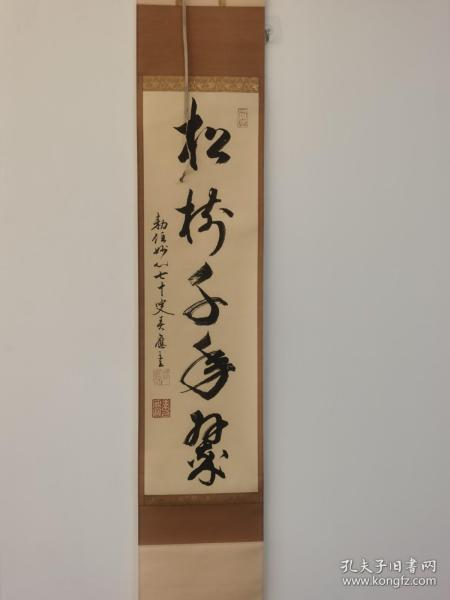 松樹千年翠
勅住妙心七十叟春應主
孔夫子旧书网
www.kongfz.com